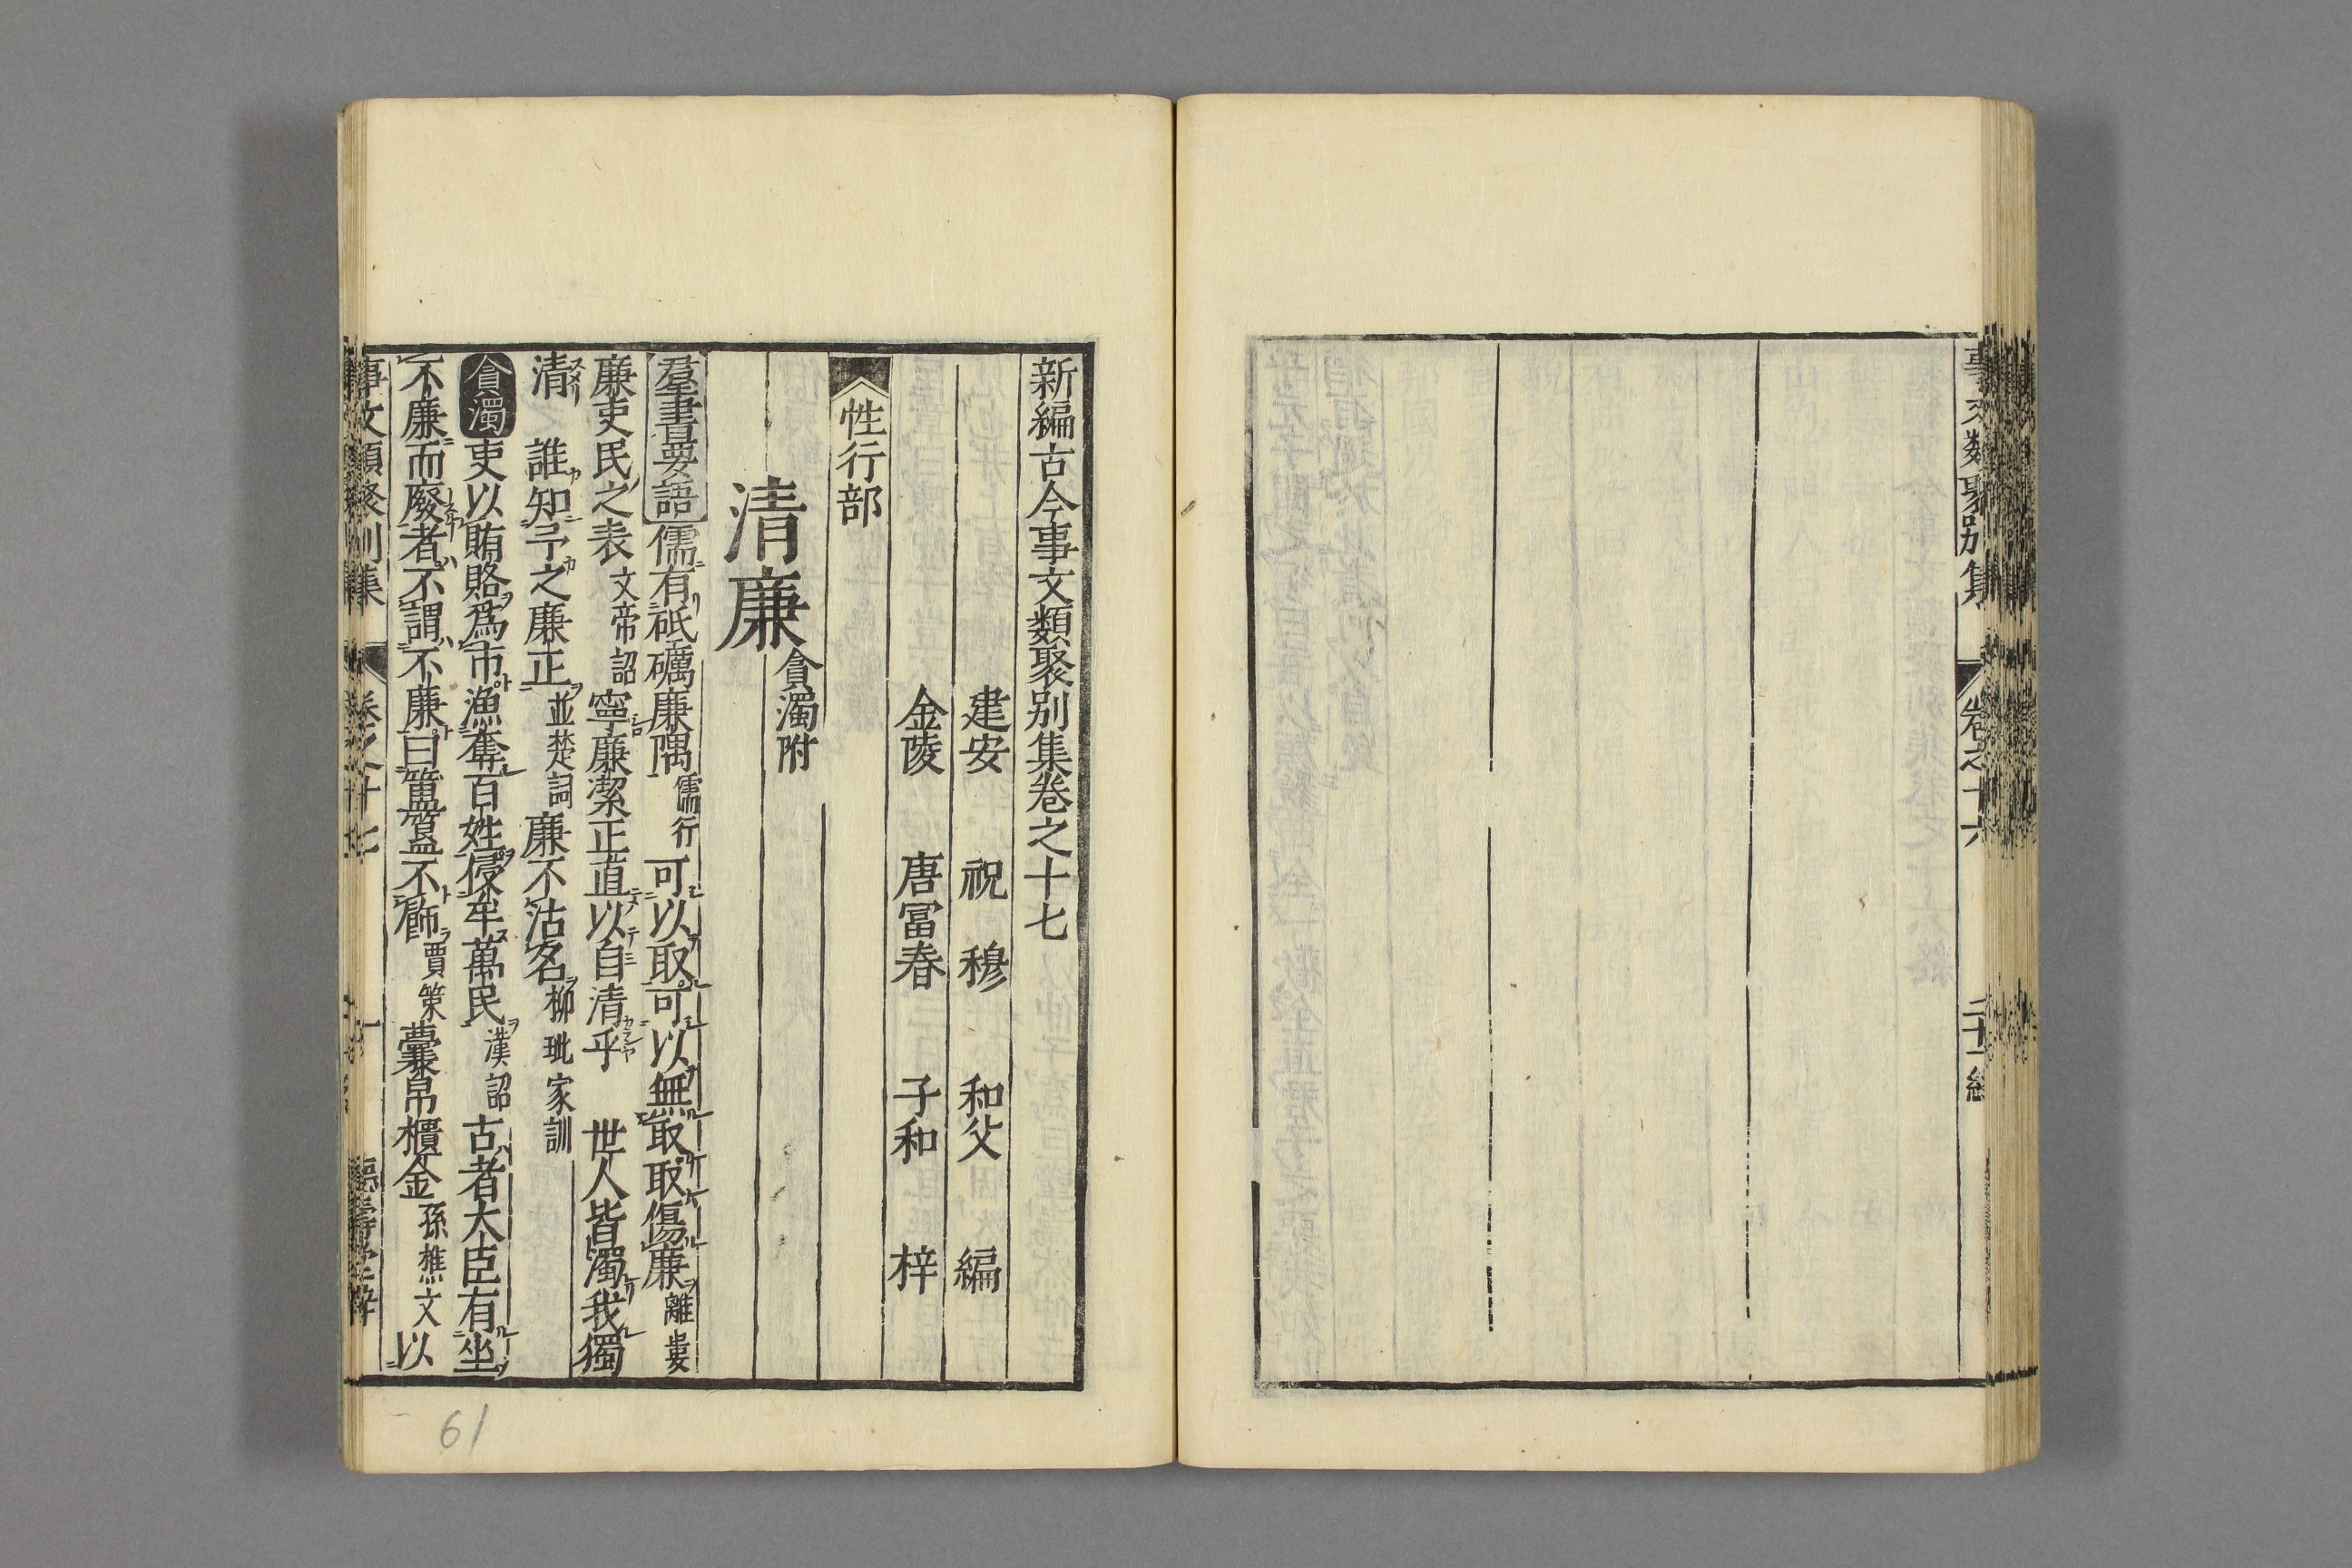 事文類聚別集 卷之十六 二十一終
新編古今事文類聚别集卷之十七
建安 祝 穆 和父 編
金陵 唐冨春 子和 梓
性行部
清廉 貪濁附
羣書要語 儒有砥礪廉隅 儒行 可以取可以無取取傷廉 離婁
廉吏民之表 文帝詔 寧廉潔正直以自清乎 世人皆濁我獨
清 誰知予之廉正 並楚詞 廉不沽名 柳玭家訓
貪濁 吏以賄賂爲市漁奪百姓侵牟萬民 漢詔 古者大臣有坐
不廉而廢者不謂不廉曰簠簋不飾 賈策 囊帛櫃金 孫樵文 以
事文類聚別集 卷之十七 一
61